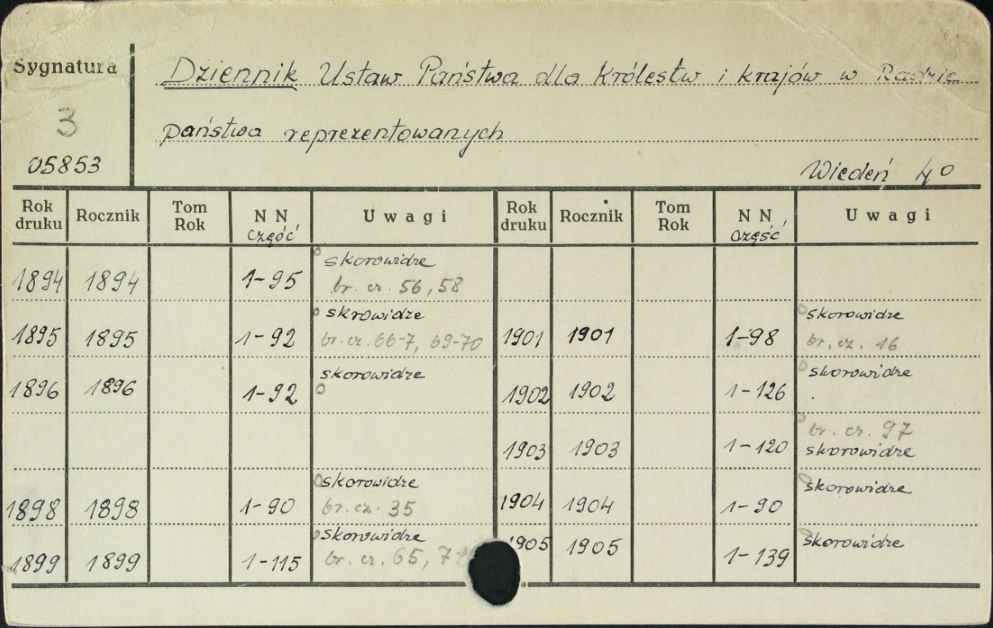 Sygnatura
3
05853
Dziennik Ustaw Państwa dla Królestw i krajów w Radzie
państwa reprezentowanych
Wiedeń 4⁰
Rok druku Rocznik Tom Rok N N część Uwagi Rok druku Rocznik Tom Rok N N część Uwagi
1894 1894 1-95 skorowidze
br. cz. 56, 58
1895 1895 1-92 skrowidze
br. cz. 66-7, 69-70
1901 1901 1-98 skorowidze
br. cz. 16
1896 1896 1-92 skorowidze
1902 1902 1-126 skorowidze
1903 1903 1-120 br. cz. 97
skorowidze
1898 1898 1-90 skorowidze
br. cz. 35
1904 1904 1-90 skorowidze
1899 1899 1-115 skorowidze
br. cz. 65,
1905 1905 1-139 skorowidze